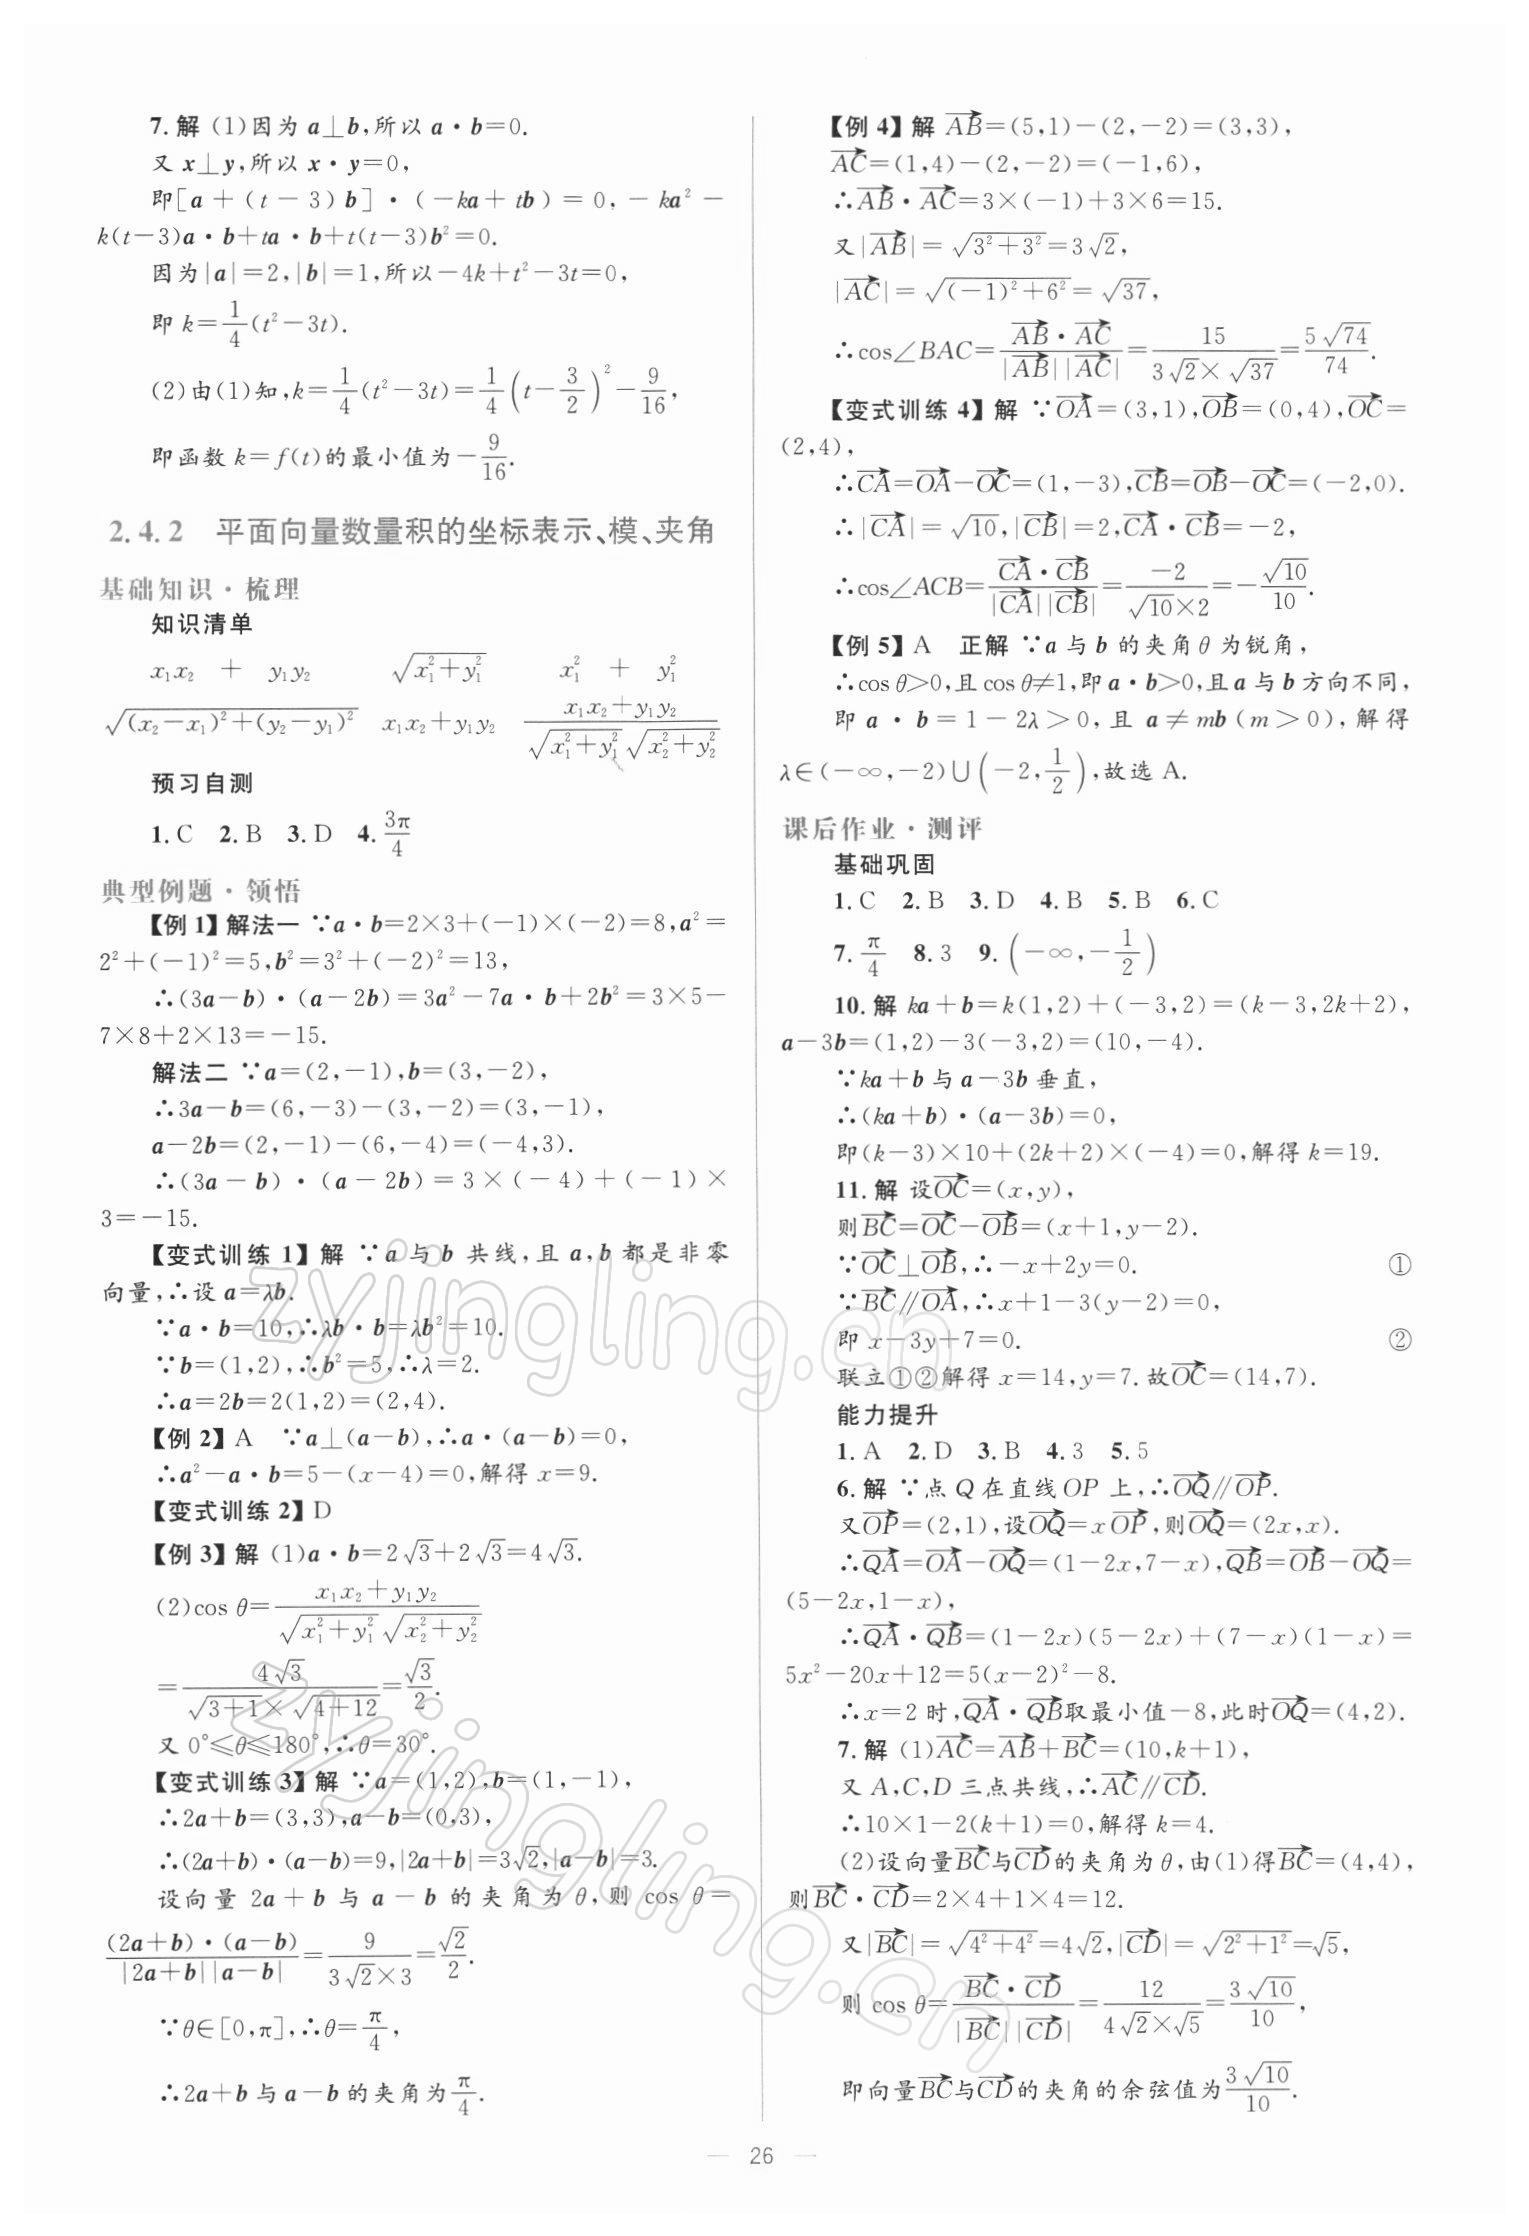 7. 解 (1)因为 a⊥b,所以 a·b=0.
又 x⊥y,所以 x·y=0,
即[a+(t-3)b]·(-ka+tb)=0,-ka²-
k(t-3)a·b+ta·b+t(t-3)b²=0.
因为|a|=2,|b|=1,所以-4k+t²-3t=0,
即 k=1/4(t²-3t).
(2)由(1)知,k=1/4(t²-3t)=1/4(t-3/2)²-9/16,
即函数 k=f(t)的最小值为-9/16.
2.4.2 平面向量数量积的坐标表示、模、夹角
基础知识·梳理
知识清单
x₁x₂ + y₁y₂ √(x₁²+y₁²) x₁² + y₁²
√((x₂-x₁)²+(y₂-y₁)²) x₁x₂+y₁y₂ (x₁x₂+y₁y₂)/(√(x₁²+y₁²)√(x₂²+y₂²))
预习自测
1. C 2. B 3. D 4. 3π/4
典型例题·领悟
【例 1】解法一 ∵a·b=2×3+(-1)×(-2)=8,a²=
2²+(-1)²=5,b²=3²+(-2)²=13,
∴(3a-b)·(a-2b)=3a²-7a·b+2b²=3×5-
7×8+2×13=-15.
解法二 ∵a=(2,-1),b=(3,-2),
∴3a-b=(6,-3)-(3,-2)=(3,-1),
a-2b=(2,-1)-(6,-4)=(-4,3).
∴(3a-b)·(a-2b)=3×(-4)+(-1)×
3=-15.
【变式训练 1】解 ∵a 与 b 共线,且 a,b 都是非零
向量,∴设 a=λb.
∵a·b=10,∴λb·b=λb²=10.
∵b=(1,2),∴b²=5,∴λ=2.
∴a=2b=2(1,2)=(2,4).
【例 2】A ∵a⊥(a-b),∴a·(a-b)=0,
∴a²-a·b=5-(x-4)=0,解得 x=9.
【变式训练 2】D
【例 3】解 (1)a·b=2√3+2√3=4√3.
(2)cos θ=(x₁x₂+y₁y₂)/(√(x₁²+y₁²)√(x₂²+y₂²))
=4√3/(√(3+1)×√(4+12))=√3/2.
又 0°≤θ≤180°,∴θ=30°.
【变式训练 3】解 ∵a=(1,2),b=(1,-1),
∴2a+b=(3,3),a-b=(0,3),
∴(2a+b)·(a-b)=9,|2a+b|=3√2,|a-b|=3.
设向量 2a+b 与 a-b 的夹角为 θ,则 cos θ=
(2a+b)·(a-b)/(|2a+b||a-b|)=9/(3√2×3)=√2/2.
∵θ∈[0,π],∴θ=π/4,
∴2a+b 与 a-b 的夹角为π/4.
【例 4】解 AB→=(5,1)-(2,-2)=(3,3),
AC→=(1,4)-(2,-2)=(-1,6),
∴AB→·AC→=3×(-1)+3×6=15.
又|AB→|=√(3²+3²)=3√2,
|AC→|=√((-1)²+6²)=√37,
∴cos∠BAC=AB→·AC→/(|AB→||AC→|)=15/(3√2×√37)=5√74/74.
【变式训练 4】解 ∵OA→=(3,1),OB→=(0,4),OC→=
(2,4),
∴CA→=OA→-OC→=(1,-3),CB→=OB→-OC→=(-2,0).
∴|CA→|=√10,|CB→|=2,CA→·CB→=-2,
∴cos∠ACB=CA→·CB→/(|CA→||CB→|)=-2/(√10×2)=-√10/10.
【例 5】A 正解 ∵a 与 b 的夹角 θ 为锐角,
∴cos θ>0,且 cos θ≠1,即 a·b>0,且 a 与 b 方向不同,
即 a·b=1-2λ>0,且 a≠mb(m>0),解得
λ∈(-∞,-2)∪(-2,1/2),故选 A.
课后作业·测评
基础巩固
1. C 2. B 3. D 4. B 5. B 6. C
7. π/4 8. 3 9. (-∞,-1/2)
10. 解 ka+b=k(1,2)+(-3,2)=(k-3,2k+2),
a-3b=(1,2)-3(-3,2)=(10,-4).
∵ka+b 与 a-3b 垂直,
∴(ka+b)·(a-3b)=0,
即(k-3)×10+(2k+2)×(-4)=0,解得 k=19.
11. 解 设OC→=(x,y),
则BC→=OC→-OB→=(x+1,y-2).
∵OC→⊥OB→,∴-x+2y=0. ①
∵BC→∥OA→,∴x+1-3(y-2)=0,
即 x-3y+7=0. ②
联立①②解得 x=14,y=7. 故OC→=(14,7).
能力提升
1. A 2. D 3. B 4. 3 5. 5
6. 解 ∵点 Q 在直线 OP 上,∴OQ→∥OP→.
又OP→=(2,1),设OQ→=xOP→,则OQ→=(2x,x).
∴QA→=OA→-OQ→=(1-2x,7-x),QB→=OB→-OQ→=
(5-2x,1-x),
∴QA→·QB→=(1-2x)(5-2x)+(7-x)(1-x)=
5x²-20x+12=5(x-2)²-8.
∴x=2 时,QA→·QB→取最小值-8,此时OQ→=(4,2).
7. 解 (1)AC→=AB→+BC→=(10,k+1),
又 A,C,D 三点共线,∴AC→∥CD→.
∴10×1-2(k+1)=0,解得 k=4.
(2)设向量BC→与CD→的夹角为 θ,由(1)得BC→=(4,4),
则BC→·CD→=2×4+1×4=12.
又|BC→|=√(4²+4²)=4√2,|CD→|=√(2²+1²)=√5,
则 cos θ=BC→·CD→/(|BC→||CD→|)=12/(4√2×√5)=3√10/10,
即向量BC→与CD→的夹角的余弦值为3√10/10.
— 26 —
zyjingling.cn
zyjingling.cn